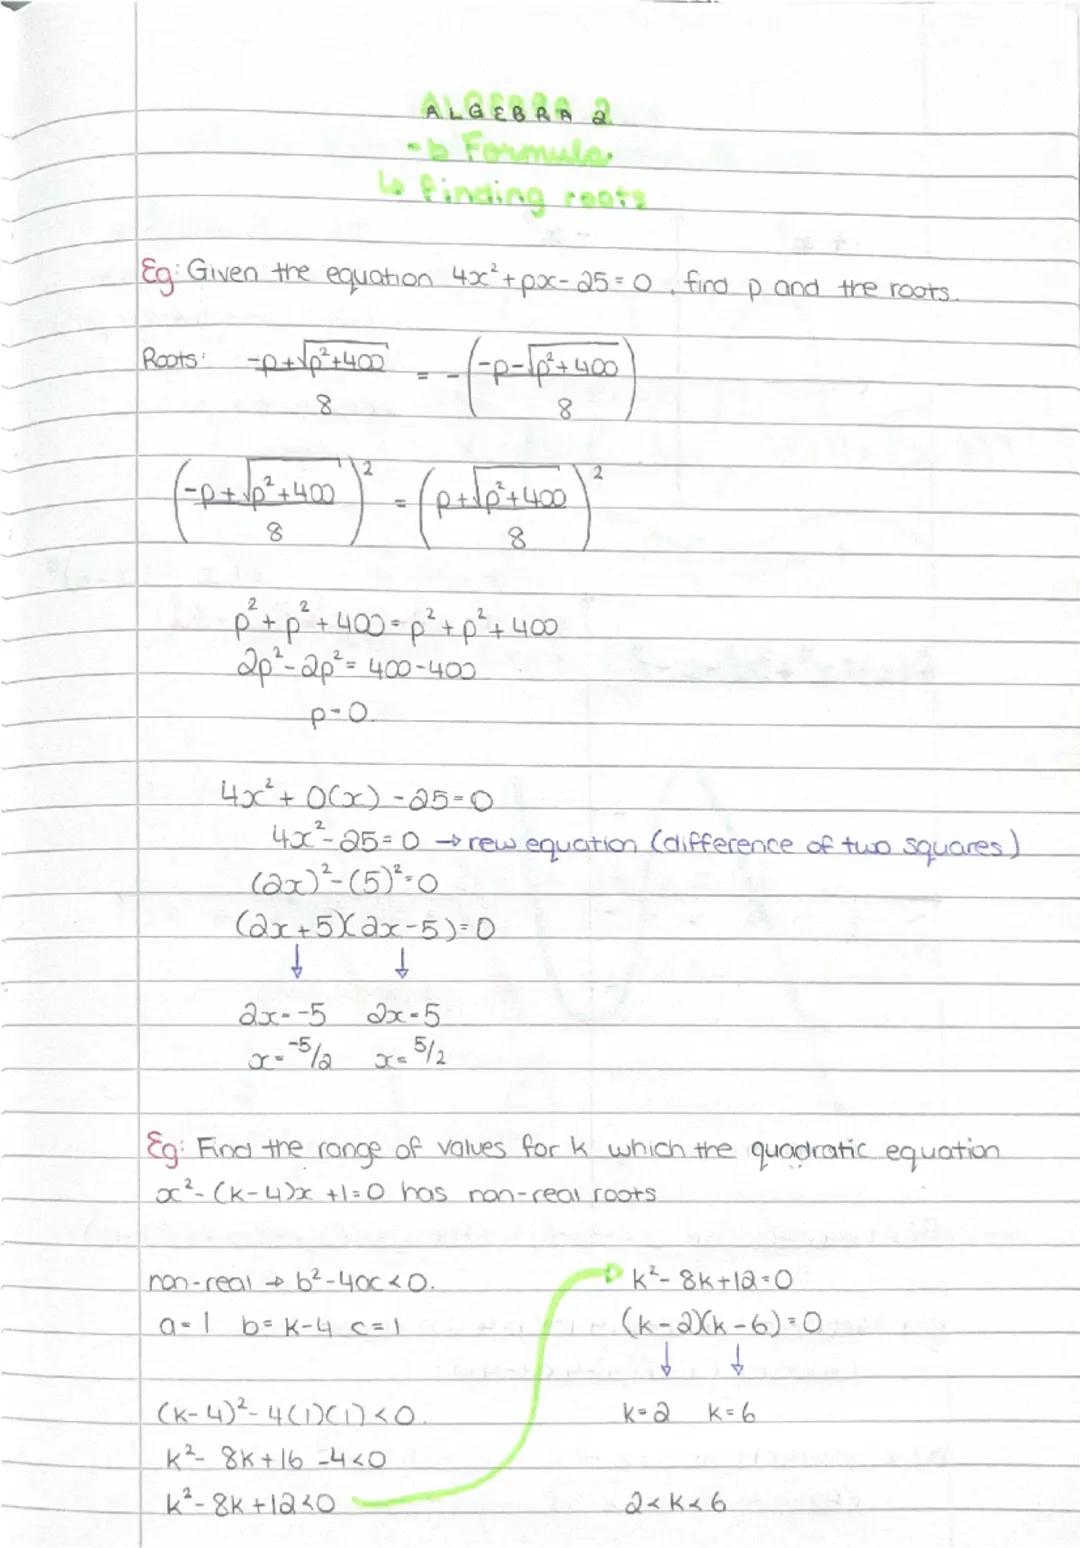 ALGEBRA 2
-b Formula
↳ finding roots
Eg: Given the equation 4x²+px-25=0, find p and the roots.
Roots: (-p+√(p²+400))/8 = -((-p-√(p²+400))/8)
((-p+√(p²+400))/8)² = ((p+√(p²+400))/8)²
p²+p²+400=p²+p²+400
2p²-2p²=400-400
p=0.
4x²+0(x)-25=0
4x²-25=0 → new equation (difference of two squares)
(2x)²-(5)²=0
(2x+5)(2x-5)=0
↓ ↓
2x=-5 2x=5
x=-5/2 x=5/2
Eg: Find the range of values for k which the quadratic equation
x²-(k-4)x+1=0 has non-real roots
non-real → b²-4ac<0.
a=1 b=k-4 c=1
(k-4)²-4(1)(1)<0.
k²-8k+16-4<0
k²-8k+12<0
k²-8k+12=0
(k-2)(k-6)=0
↓ ↓
k=2 k=6
2<k<6